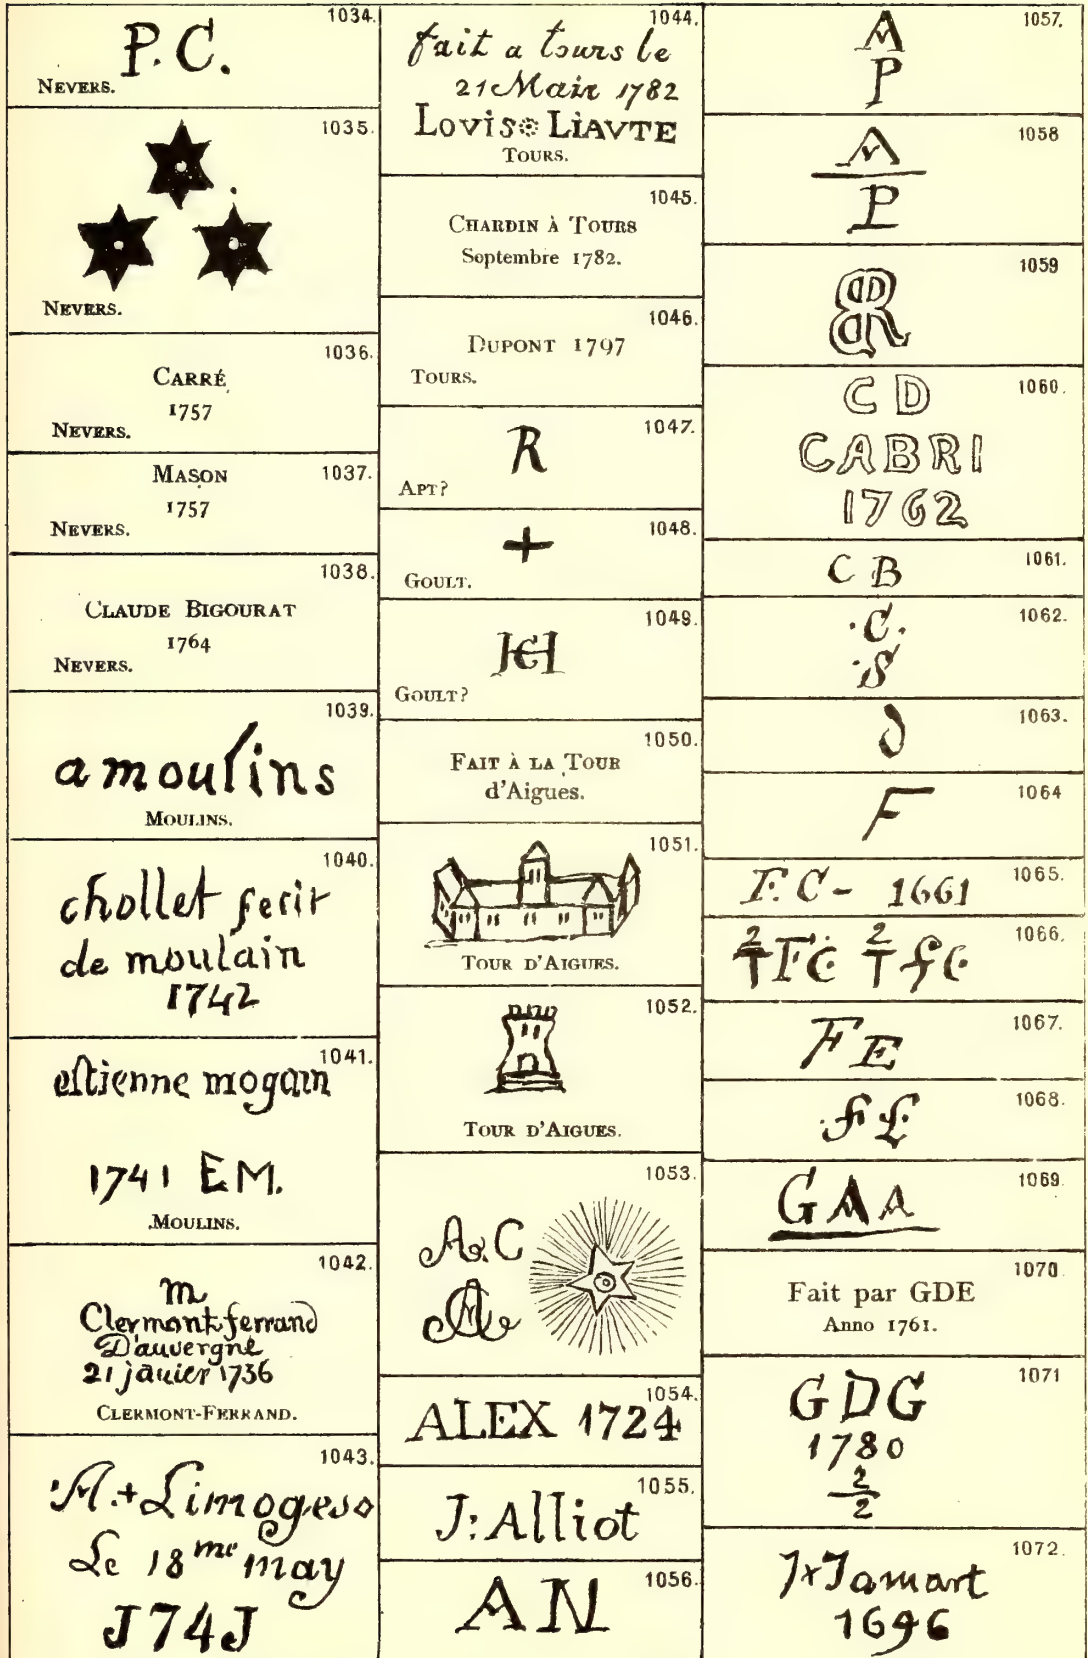 1034.
P.C.
NEVERS.
1035.
NEVERS.
1036.
CARRÉ
1757
NEVERS.
1037.
MASON
1757
NEVERS.
1038.
CLAUDE BIGOURAT
1764
NEVERS.
1039.
a moulins
MOULINS.
1040.
chollet fecit
de moulain
1742
1041.
estienne mogain
1741 EM.
MOULINS.
1042.
m
Clermont ferrand
D'auvergne
21 jauier 1736
CLERMONT-FERRAND.
1043.
A.+Limoges
Le 18me may
J74J
1044.
fait a tours le
21 Mair 1782
LOVIS LIAVTE
TOURS.
1045.
CHARDIN À TOURS
Septembre 1782.
1046.
DUPONT 1797
TOURS.
1047.
R
APT?
1048.
+
GOULT.
1049.
GOULT?
1050.
FAIT À LA TOUR
d'Aigues.
1051.
TOUR D'AIGUES.
1052.
TOUR D'AIGUES.
1053.
A.C
1054.
ALEX 1724
1055.
J:Alliot
1056.
AN
1057.
A
P
1058
A
P
1059
1060.
C D
CABRI
1762
1061.
C B
1062.
.C.
.S
1063.
1064
F
1065.
F.C- 1661
1066.
1067.
F E
1068.
1069.
GAA
1070
Fait par GDE
Anno 1761.
1071
GDG
1780
2
2
1072.
J+Jamart
1696